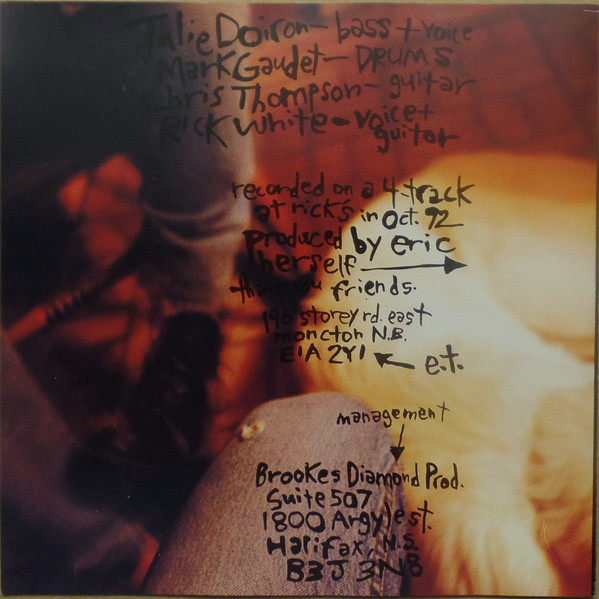 Julie Doiron - bass + voice
Mark Gaudet - DRUMS
Chris Thompson - guitar
Rick White - voice + guitar
recorded on a 4-track
at rick's in Oct. 92
produced by eric
herself →
thank you friends.
196 storey rd. east
moncton N.B.
E1A 2Y1 ← e.t.
management
↓
Brookes Diamond Prod.
Suite 507
1800 Argyle st.
Halifax, N.S.
B3J 3N8